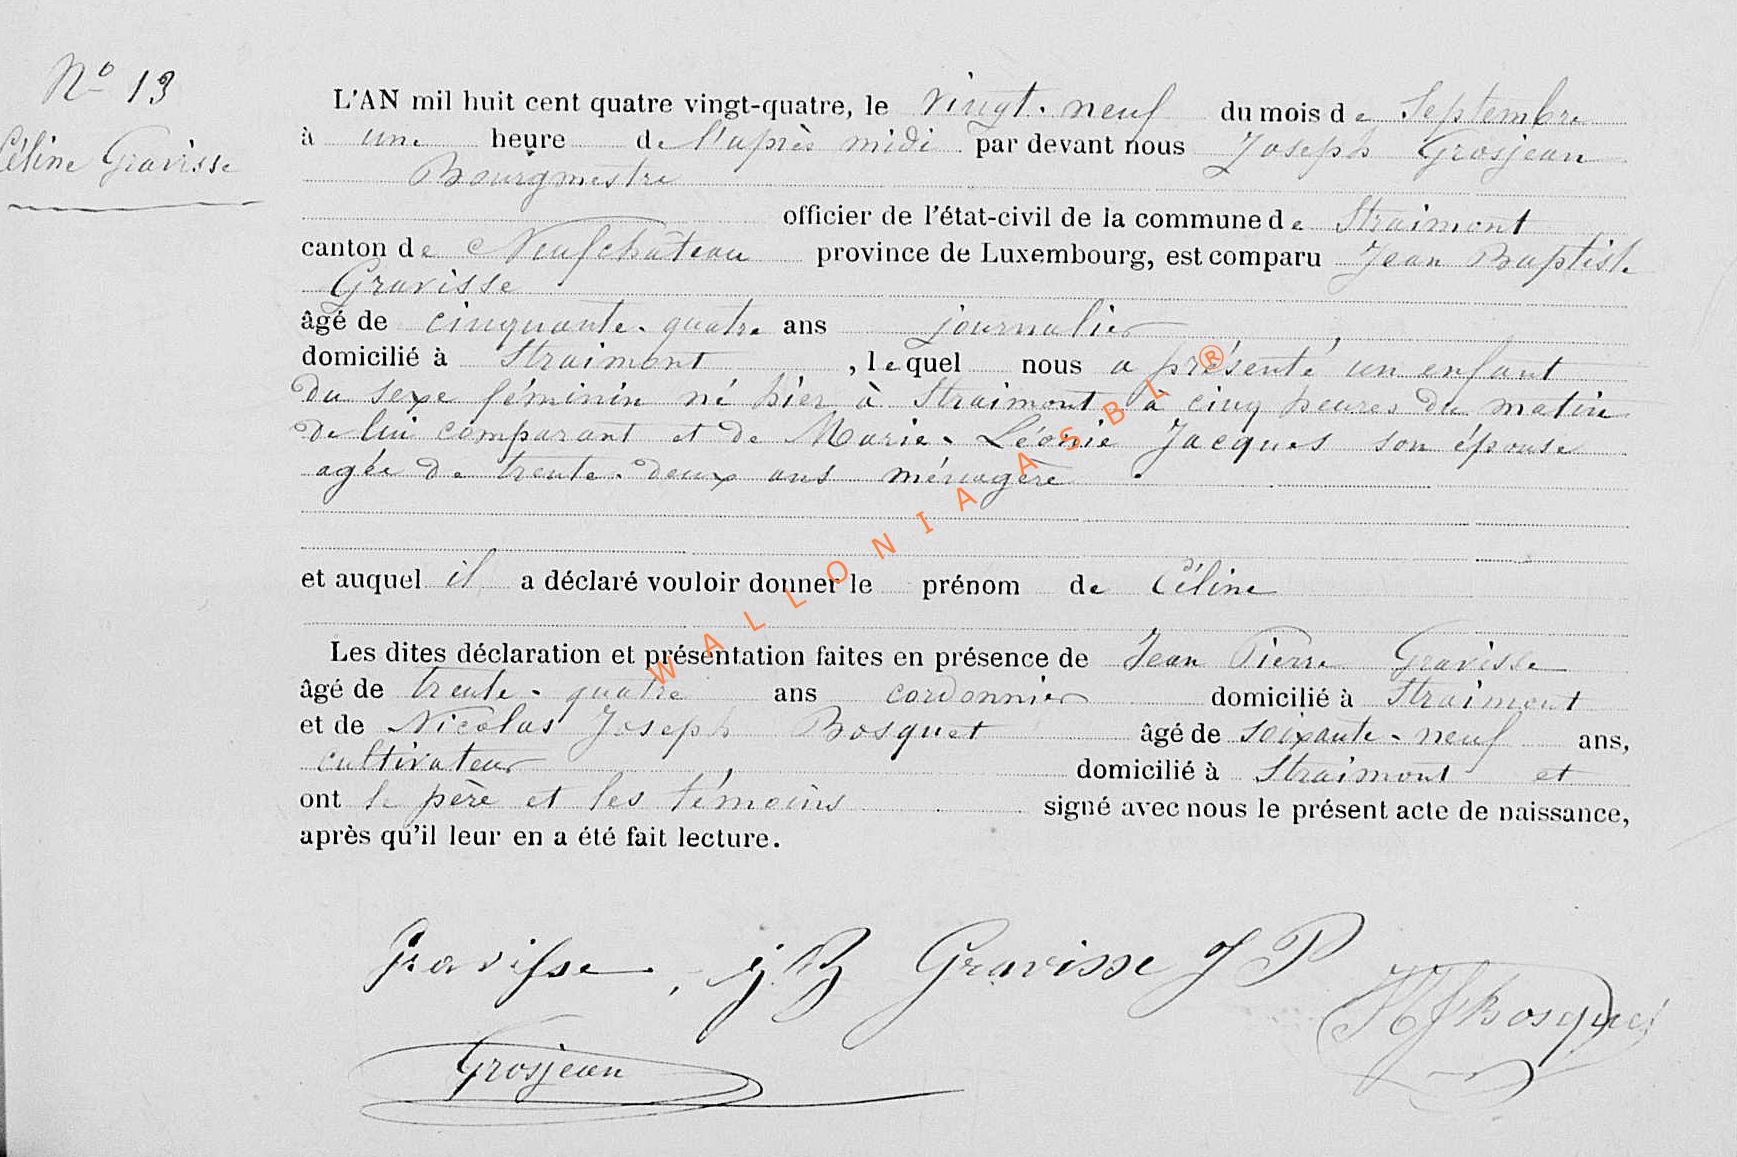 N° 13
Céline Gravisse
L'AN mil huit cent quatre vingt-quatre, le vingt-neuf du mois de Septembre
à une heure de l'après midi par devant nous Joseph Grosjean
Bourgmestre
officier de l'état-civil de la commune de Straimont
canton de Neufchâteau province de Luxembourg, est comparu Jean Baptiste
Gravisse
âgé de cinquante-quatre ans journalier
domicilié à Straimont, lequel nous a présenté un enfant
du sexe féminin né hier à Straimont à cinq heures du matin
de lui comparant et de Marie-Léonie Jacques son épouse
agée de trente-deux ans ménagère
et auquel il a déclaré vouloir donner le prénom de Céline
Les dites déclaration et présentation faites en présence de Jean Pierre Gravisse
âgé de trente-quatre ans cordonnier domicilié à Straimont
et de Nicolas Joseph Bosquet âgé de soixante-neuf ans,
cultivateur domicilié à Straimont et
ont le père et les témoins signé avec nous le présent acte de naissance,
après qu'il leur en a été fait lecture.
Gravisse, J.B Gravisse J P
NJ Bosquet
Grosjean
WALLONIA ASBL ®